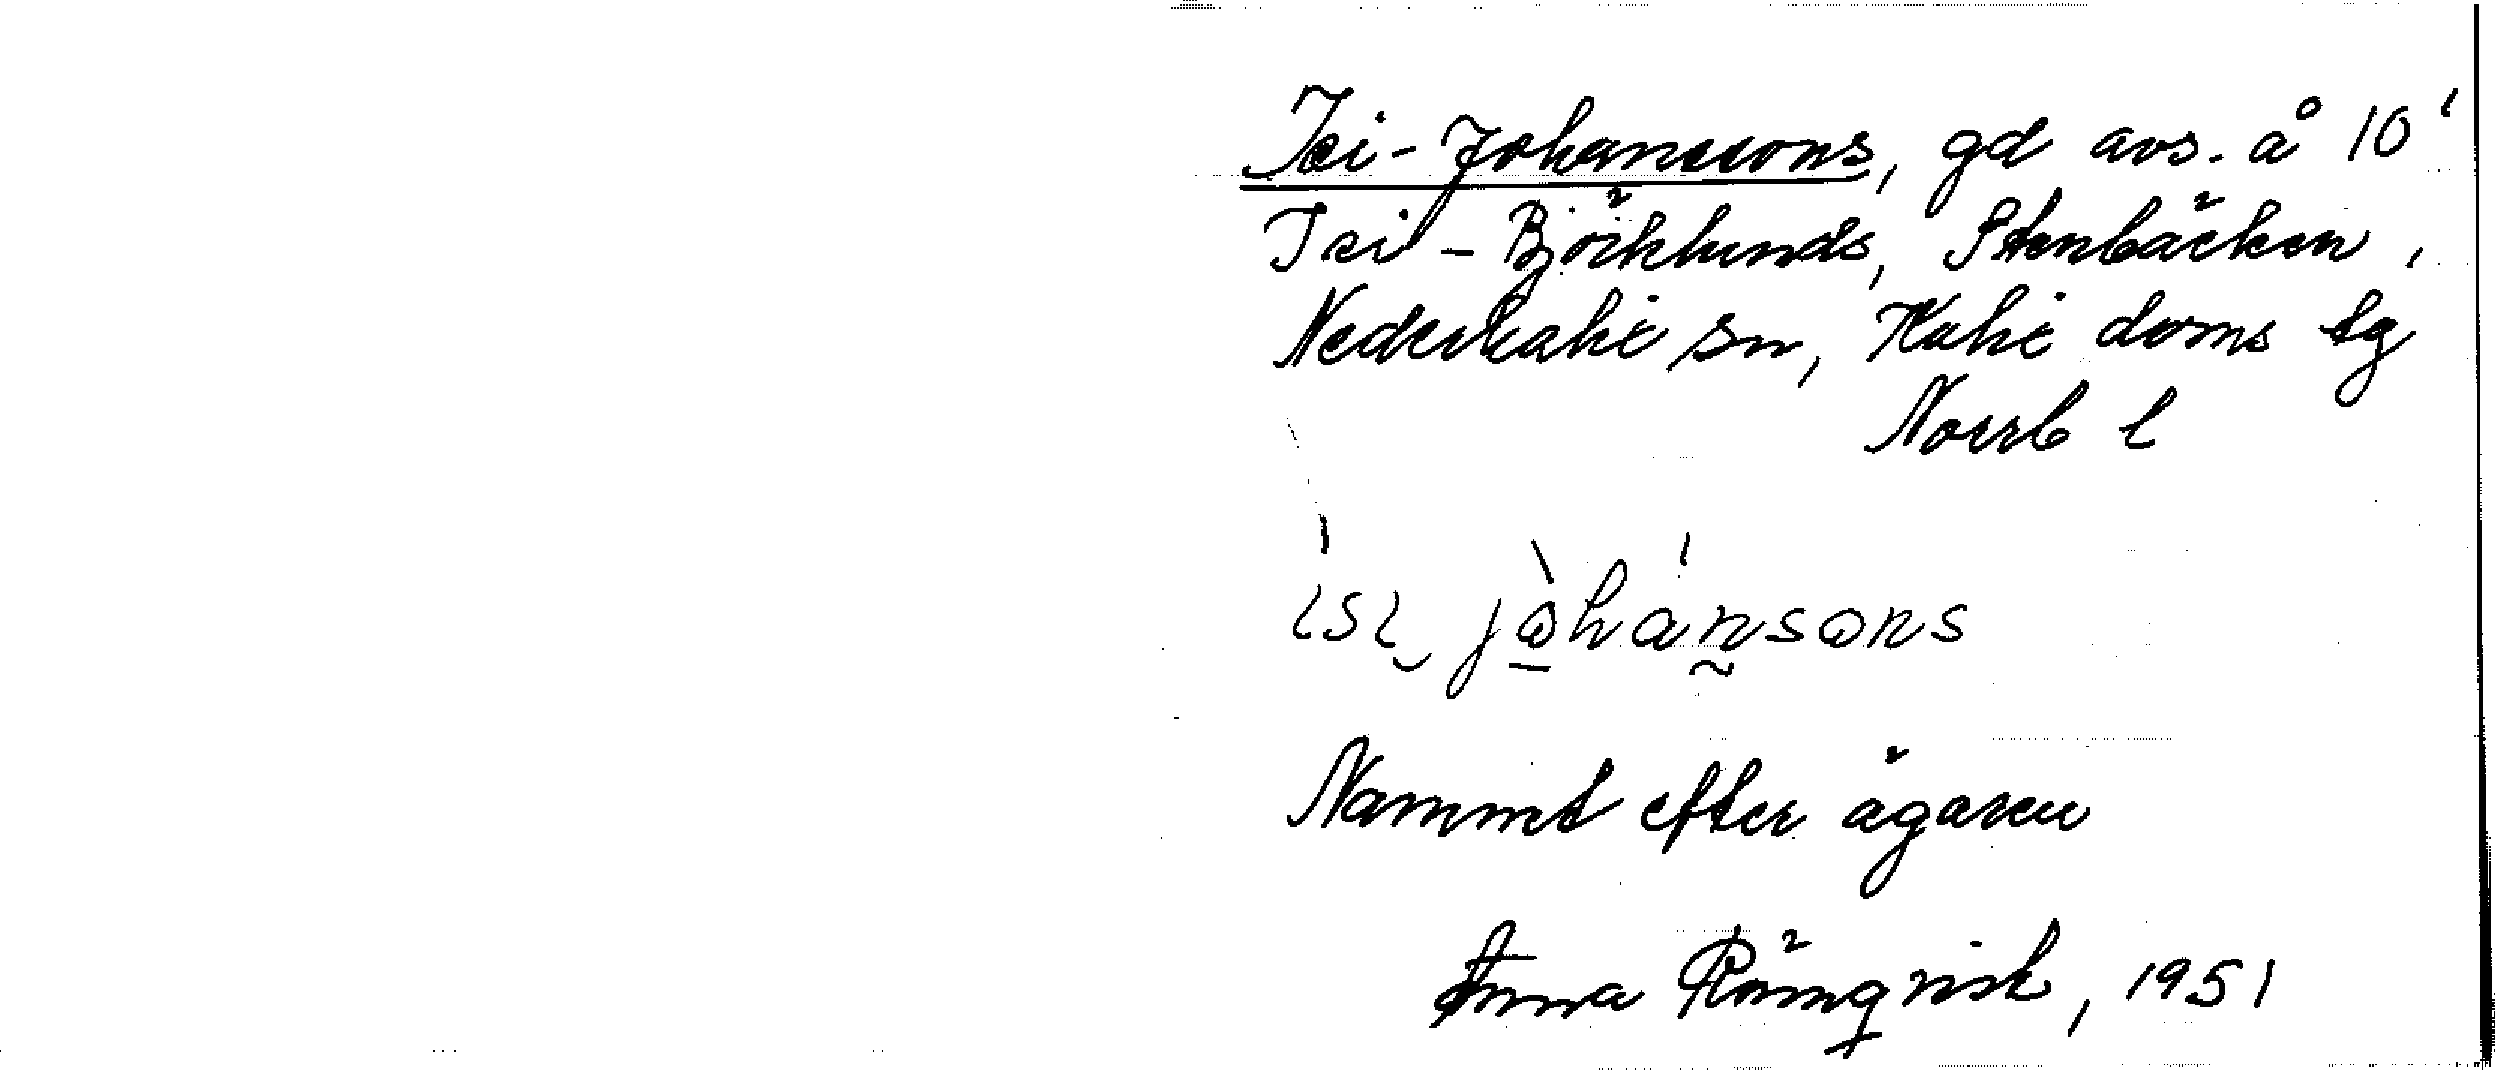 Isi-Johanssons, gd avs. å 10'
Isi-Björklunds, Stenbäcken,
Nederkalix sn, Kalix doms tg
Norrb l
ìsi jòhánsons
Namnet efter ägaren
Anna Römqvist, 1951